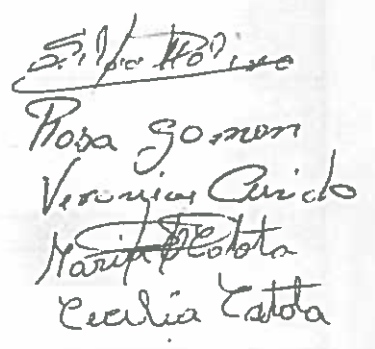 Silvia Molina
Rosa Gomon
Veronica
Maria Catota
Cecilia Catota